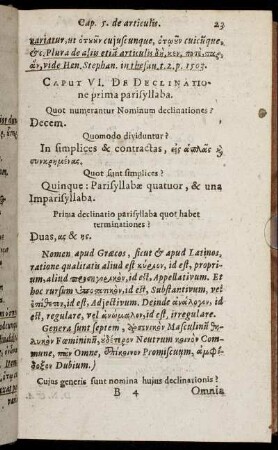 Cap. 5. de articulis. 23
variatur, ut ὁτȣ͂ν cujuscunque, ὁτῳȣ͂ν cuicūque,
&c. Plura de usu etiā articuli
vide Hen. Stephan. in thesau. t. 2. p. 1503.
CAPUT VI. DE DECLINATIO-
ne prima parisyllaba.
Quot numerantur Nominum declinationes?
Decem.
Quomodo dividuntur?
In simplices & contractas, εἰς ἁπλᾶς ϗ
συνῃρημένας.
Quot sunt simplices?
Quinque: Parisyllabæ quatuor, & una
Imparisyllaba.
Prima declinatio parisyllaba quot habet
terminationes?
Duas, ας & ης.
Nomen apud Græcos, sicut & apud Latinos,
ratione qualitatis aliud est κύριον, id est, propri-
um, aliud προσηγορικὸν, id est, Appellativum. Et
hoc rursum ὑποστατικὸν, id est, Substantivum, vel
ἐπίθετον, id est, Adjectivum. Deinde ἀνάλογον, id
est, regulare, vel ἀνώμαλον, id est, irregulare.
Genera sunt septem, ἀρσενικὸν Masculinū, θη-
λυκὸν Fœmininū, ȣ̓δέτερον Neutrum κοινὸν Com-
mune, πᾶν Omne, ἐπίκοινον Promiscuum, ἀμφί-
δοξον Dubium.)
Cujus generis sunt nomina hujus declinationis?
B 4 Omnia